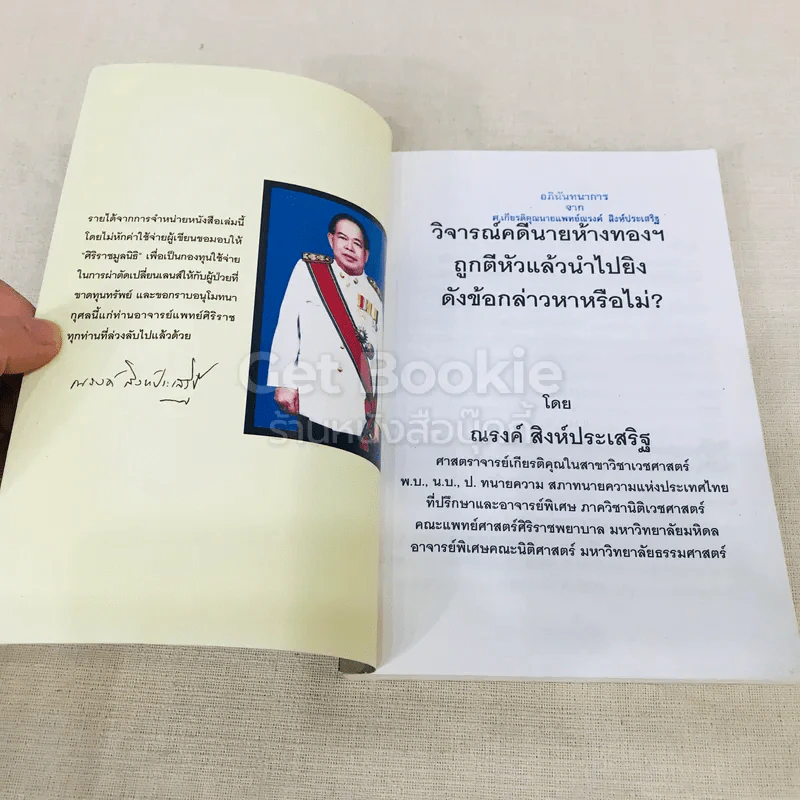 รายได้จากการจำหน่ายหนังสือเล่มนี้
โดยไม่หักค่าใช้จ่ายผู้เขียนขอมอบให้
"ศิริราชมูลนิธิ" เพื่อเป็นกองทุนใช้จ่าย
ในการผ่าตัดเปลี่ยนเลนส์ให้กับผู้ป่วยที่
ขาดทุนทรัพย์ และขอกราบอนุโมทนา
กุศลนี้แก่ท่านอาจารย์แพทย์ศิริราช
ทุกท่านที่ล่วงลับไปแล้วด้วย
ณรงค์ สิงห์ประเสริฐ
อภินันทนาการ
จาก
ศ.เกียรติคุณนายแพทย์ณรงค์ สิงห์ประเสริฐ
วิจารณ์คดีนายห้างทองฯ
ถูกตีหัวแล้วนำไปยิง
ดังข้อกล่าวหาหรือไม่?
Get Bookie
ร้านหนังสือบุ๊คกี้
โดย
ณรงค์ สิงห์ประเสริฐ
ศาสตราจารย์เกียรติคุณในสาขาวิชาเวชศาสตร์
พ.บ., น.บ., ป. ทนายความ สภาทนายความแห่งประเทศไทย
ที่ปรึกษาและอาจารย์พิเศษ ภาควิชานิติเวชศาสตร์
คณะแพทย์ศาสตร์ศิริราชพยาบาล มหาวิทยาลัยมหิดล
อาจารย์พิเศษคณะนิติศาสตร์ มหาวิทยาลัยธรรมศาสตร์